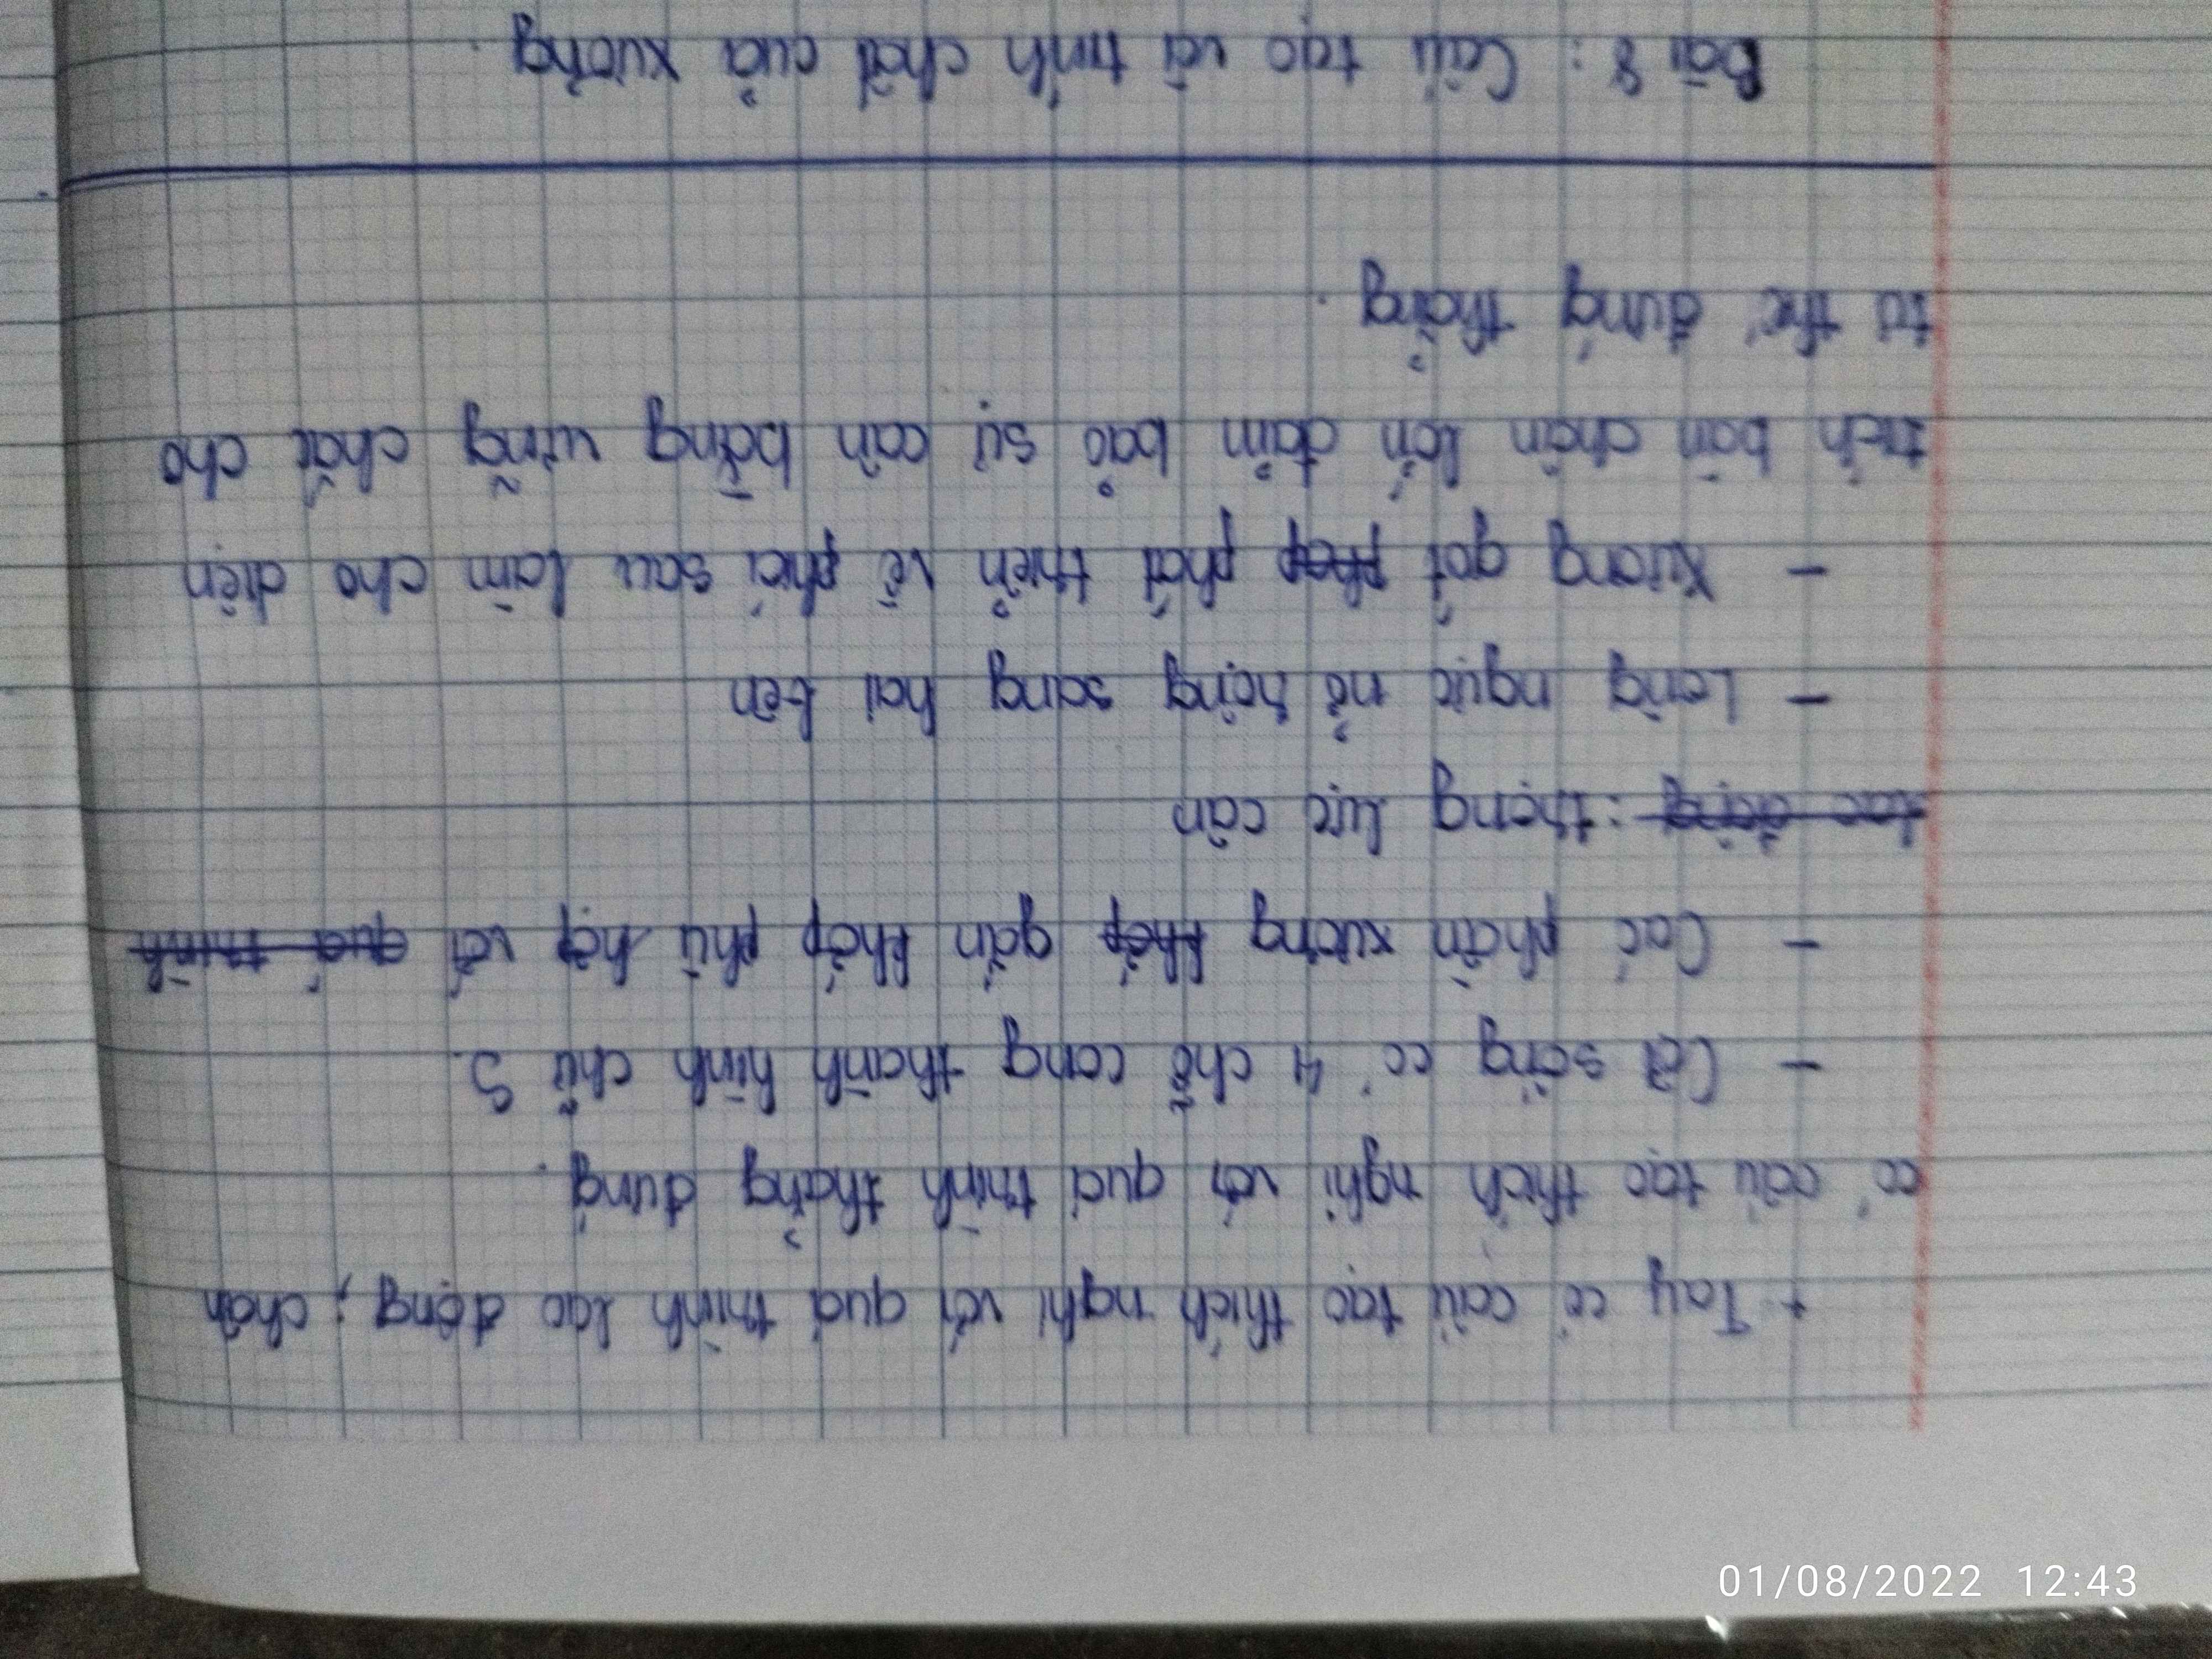 + Tay có cấu tạo thích nghi với quá trình lao động; chân
có cấu tạo thích nghi với quá trình thẳng đứng.
- Cột sống có 4 chỗ cong thành hình chữ S.
- Các phần xương khớp gắn khớp phù hợp với quá trình
lao động : trọng lực cân
- Lồng ngực nở rộng sang hai bên
- Xương gót phát thiển về phía sau làm cho diện
tích bàn chân lớn đảm bảo sự cân bằng vững chắc cho
tư thế đứng thẳng.
Bài 8 : Cấu tạo và tính chất của xương.
01/08/2022 12:43